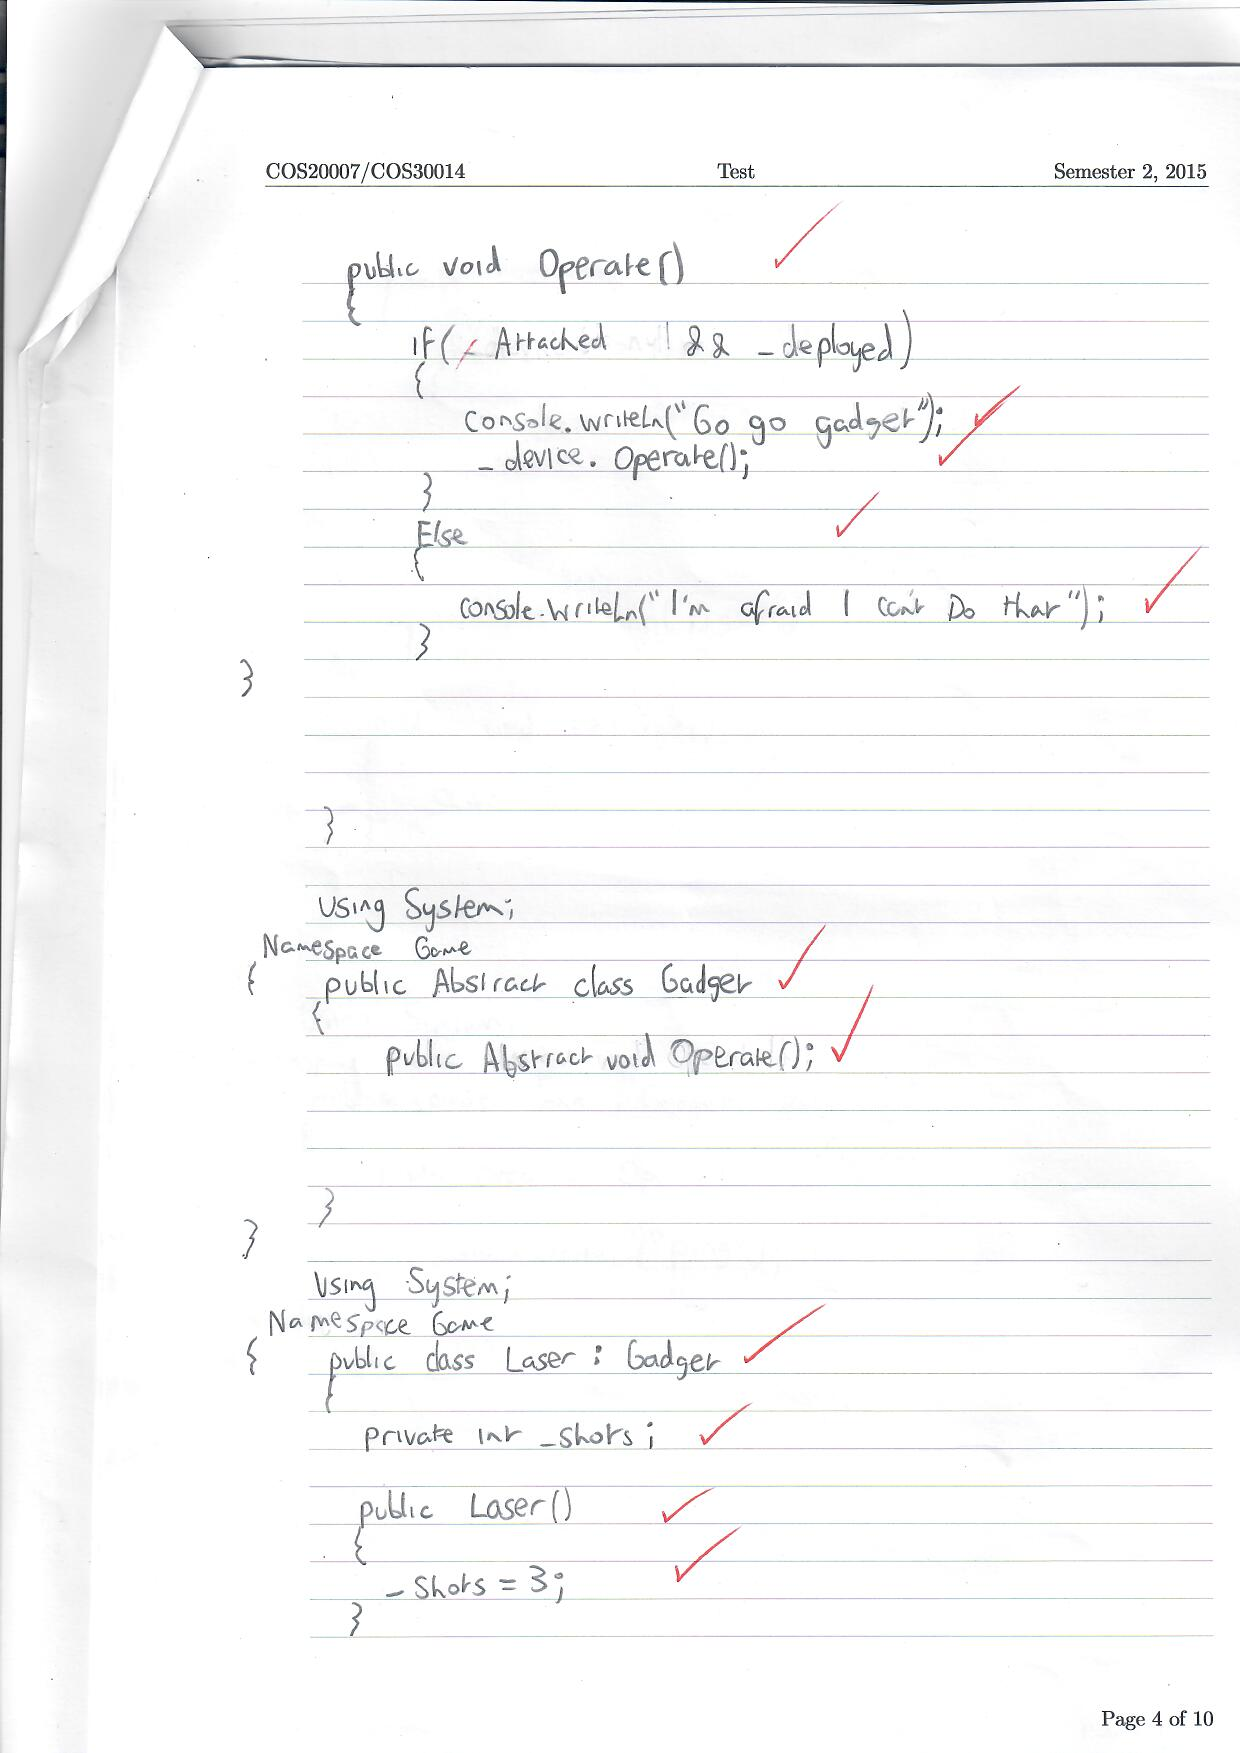 COS20007/COS30014 Test Semester 2, 2015
public void Operate()
{
if(_Attached !&& _deployed)
{
Console.WriteLn("Go go gadget");
_device.Operate();
}
Else
{
console.WriteLn("I'm afraid I can't Do that");
}
}
}
Using System;
Namespace Game
{ public Abstract class Gadget
{
public Abstract void Operate();
}
}
Using System;
Namespace Game
{ public class Laser : Gadget
{
private int _shots;
public Laser()
{
_Shots = 3;
}
Page 4 of 10